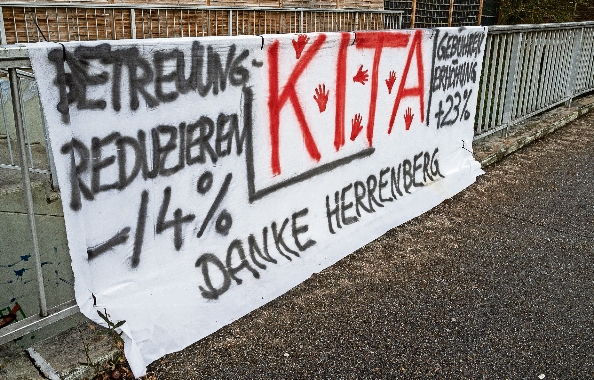 BETREUUNG-
REDUZIEREN
-14%
K.I.T.A
GEBÜHREN
ERHÖHUNG
+23%
DANKE HERRENBERG